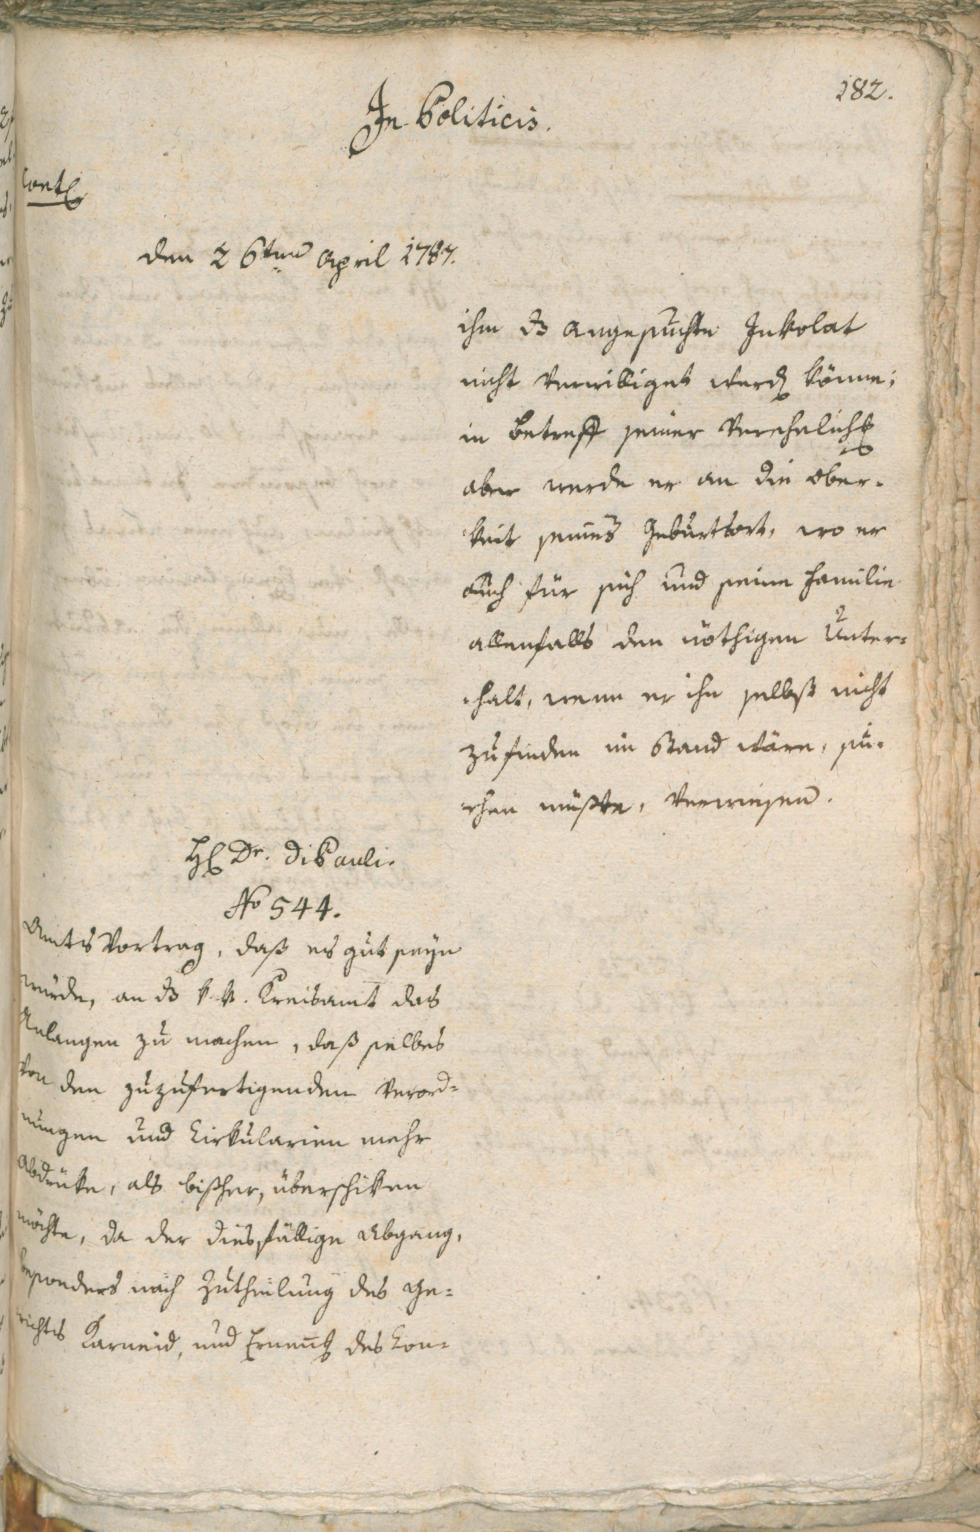 182.
In Politicis.
Cont.
den 26ten April 1787.
ihm dz angesuchte Inkolat
nicht verwilliget werdn könne;
in betreff seiner Verehelichg
aber werde er an die Ober-
keit seines Geburtsort, wo er
auch für sich und seine Familie
allenfalls den nöthigen Unter-
halt, wenn er ihn selbst nicht
zufinden im Stand wäre, su-
chen müßte, verwiesen.
H. Dr. Di Pauli.
No 544.
Amts Vortrag, daß es gut seyn
würde, an dz k. k. Kreisamt das
Anlangen zu machen, daß selbes
von den zuzufertigenden Verord-
nungen und Cirkularien mehr
Abdrüke, als bißher, überschiken
möchte, da der diesfällige Abgang,
besonders nach Zutheilung des Ge-
richts Karneid, und Ernenng des Kon-